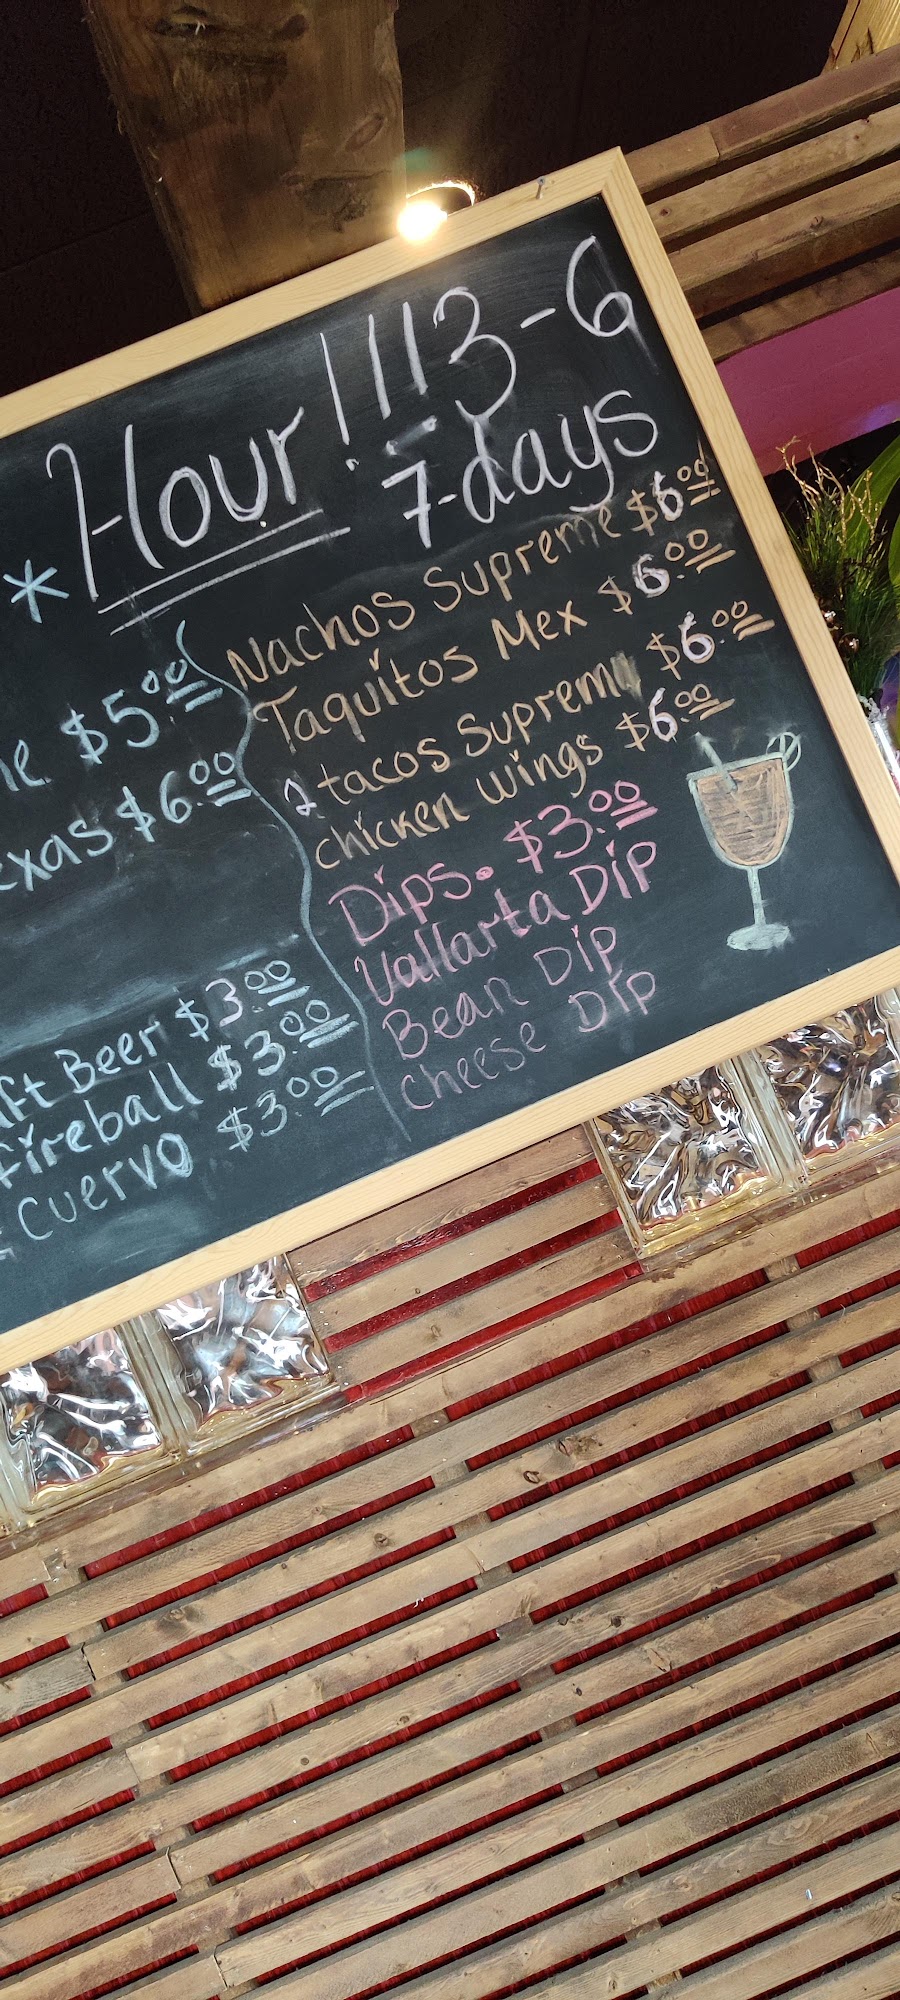 Hour!!! 3-6
7-days
$5.00
$6.00
Beer $3.00
Fireball $3.00
Cuervo $3.00
Nachos Supreme $6.00
Taquitos Mex $6.00
2 tacos Suprem $6.00
chicken wings $6.00
Dips. $3.00
Vallarta Dip
Bean Dip
cheese Dip